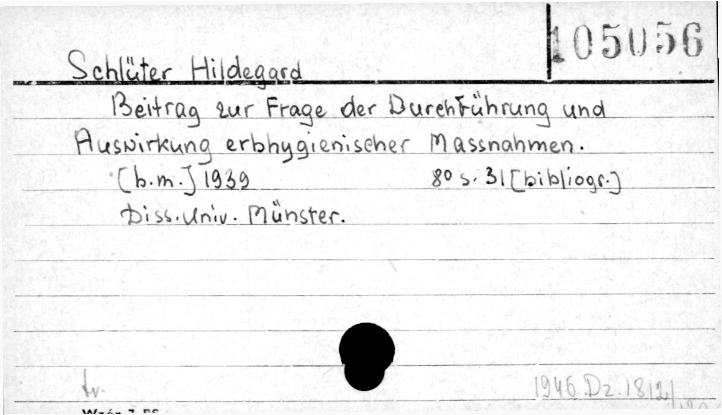 105056
Schlüter Hildegard
Beitrag zur Frage der Durchführung und
Auswirkung erbhygienischer Massnahmen.
[b.m.] 1939 8° s. 31 [bibliogr.]
Diss. Univ. Münster.
tr.
1946.Dz.1812/